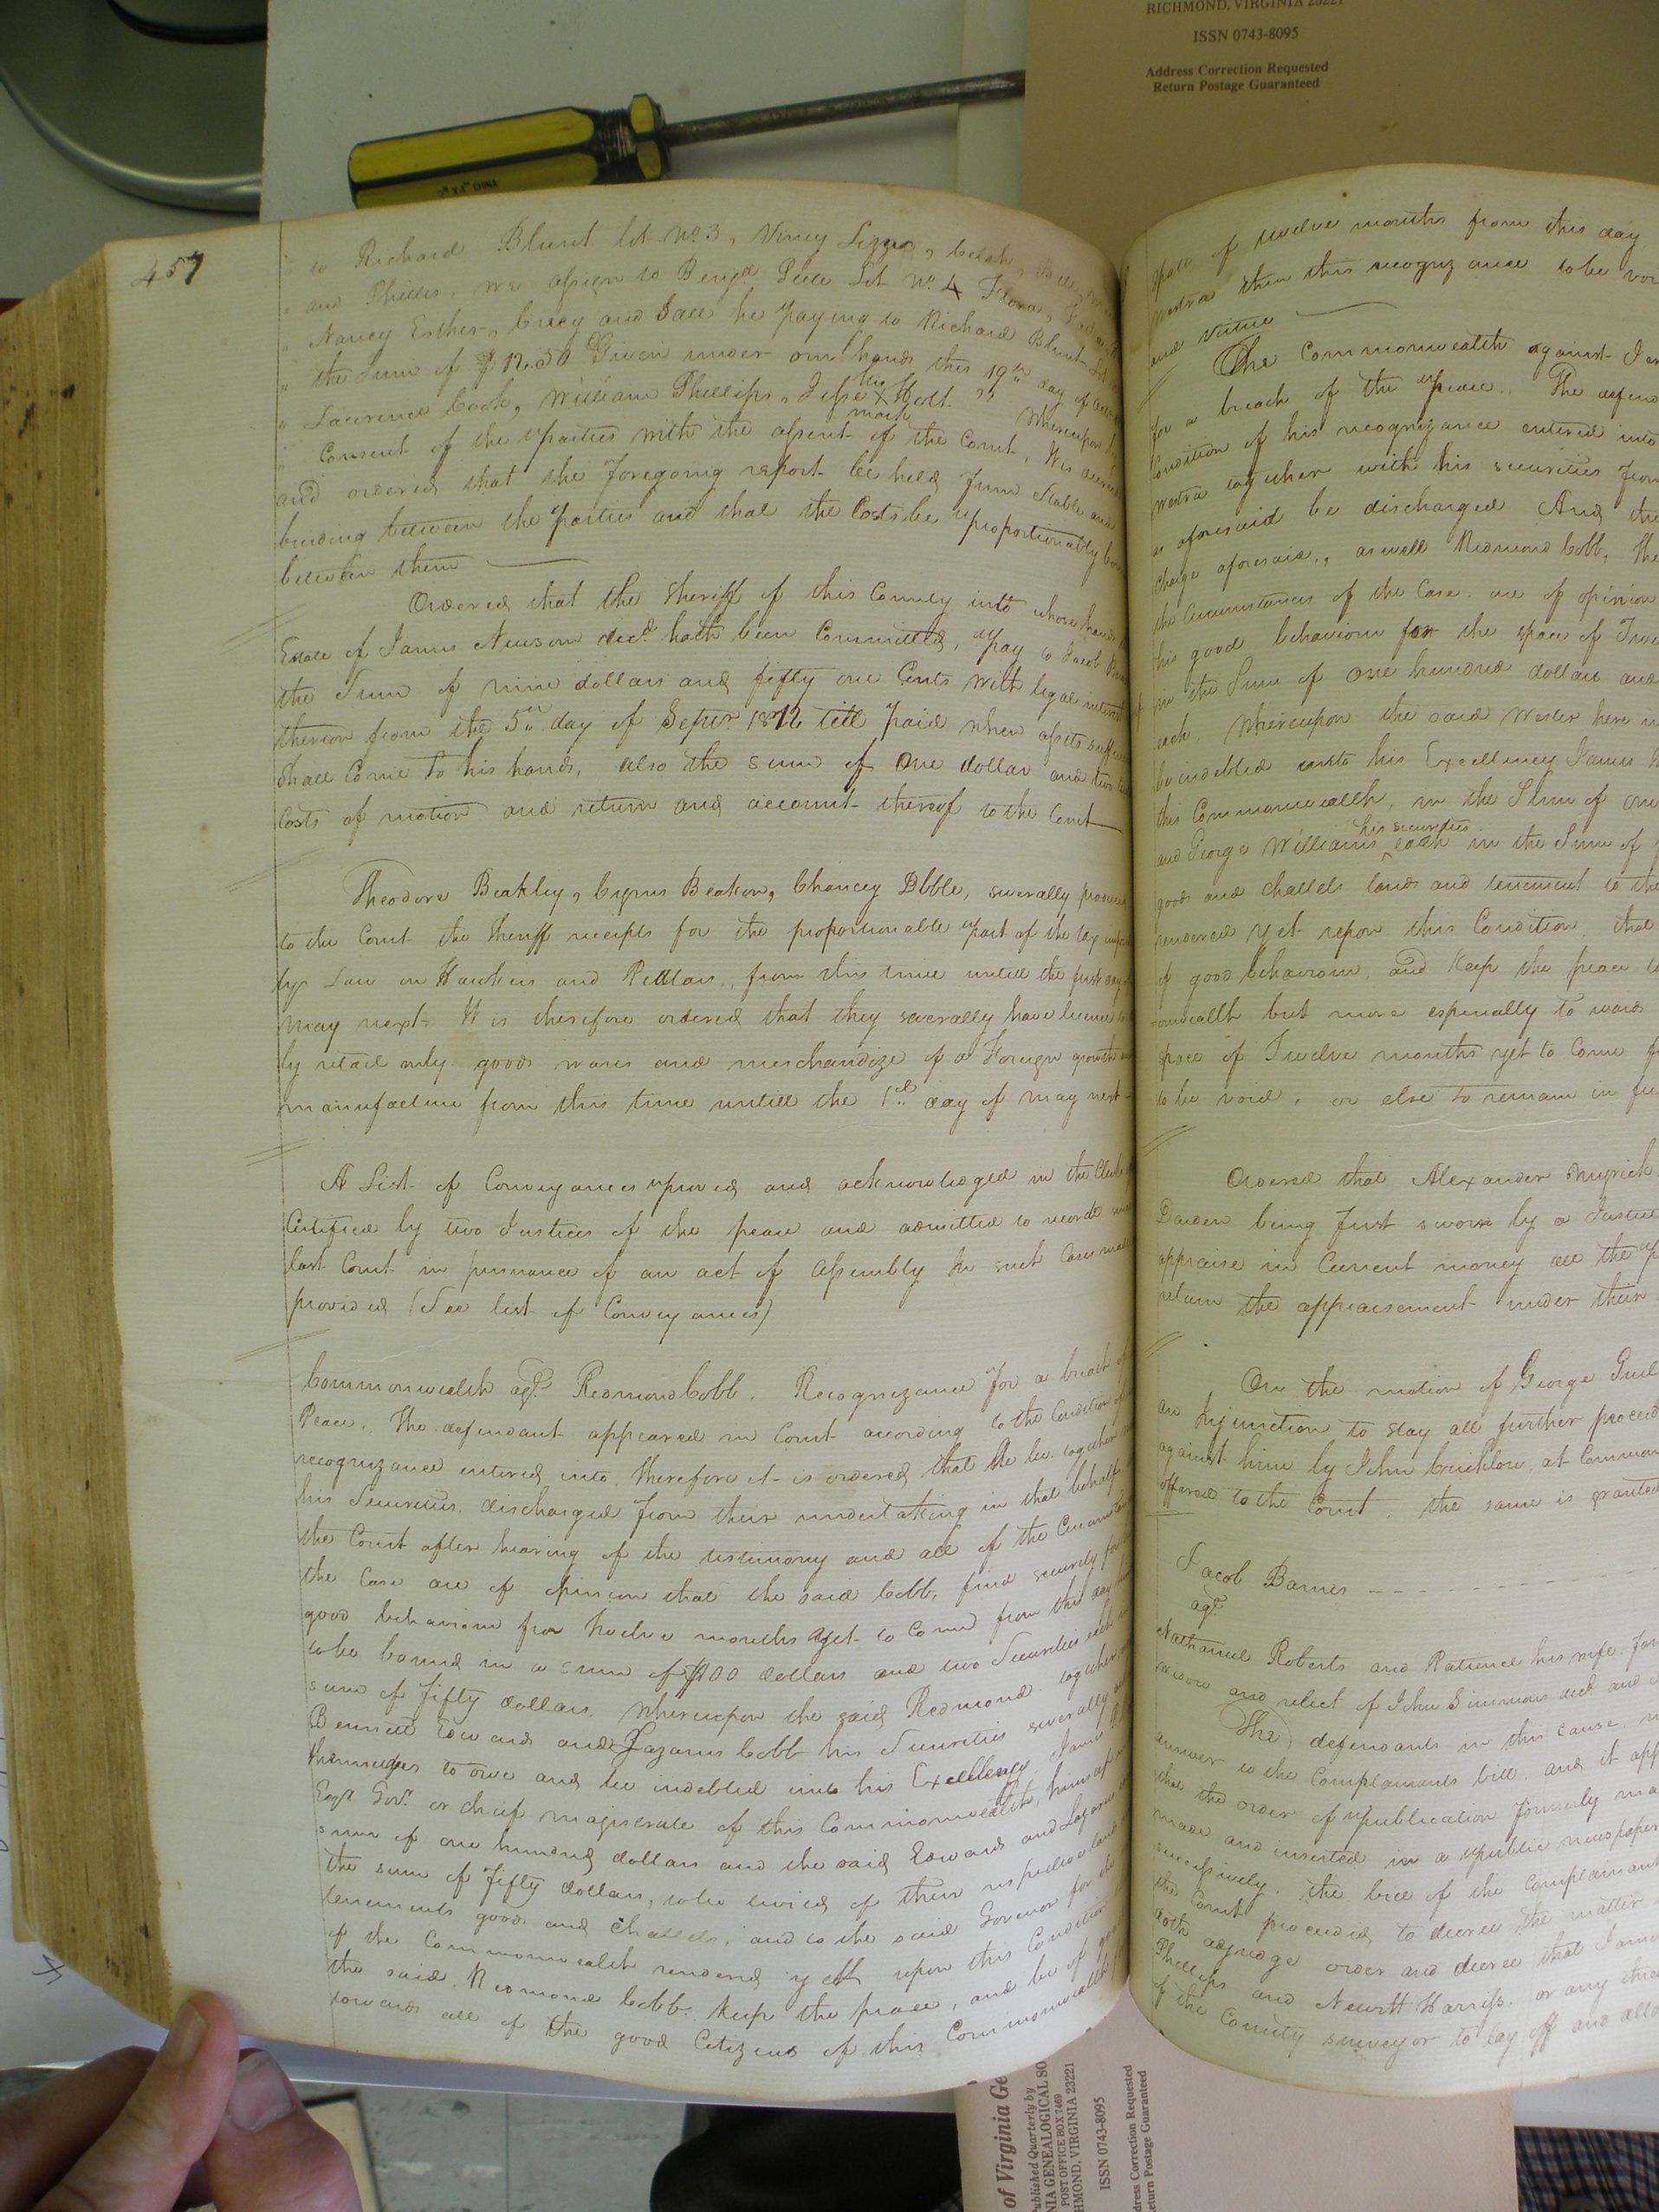 RICHMOND, VIRGINIA 23221
ISSN 0743-8095
Address Correction Requested
Return Postage Guaranteed
457
" to Richard Blunt lot No. 3, Viney Lizzy, Celah,
" and Phillis, we assign to Benja. Peete Lot No. 4
" Nancy Esther, Creey and Sall he paying to Richard Blunt
" the Sum of $12.50 Given under our hands this 19th day of
" Laurence Cook, William Phillips, Jesse X Holt " Whereupon
his
mark
" Consent of the parties with the assent of the Court, It is
and ordered that the foregoing report be held firm stable and
binding between the parties and that the Costs be proportionably
between them
Ordered that the Sheriff of this County into whose hands
Estate of James Newsom decd. hath been Committed, pay to Jacob
the Sum of nine dollars and fifty one Cents with legal interest
thereon from the 5th day of Septer 1812 till paid when assets
shall Come to his hands, also the sum of One dollar and two
Costs of motion and return and account thereof to the Court
Theodore Beakley, Cyrus Beakon, Chancey Dbble, severally
to the Court the Sheriff receipts for the proportionable part of the tax
by Law on Hawkers and Pedlars, from this time untill the first day
may next It is therefore ordered that they severally have
by retail only goods wares and merchandize of a Foreign growth
manufacture from this time untill the 1st day of may next
A List of Conveyances proved and acknowledged in the
Certified by two Justices of the peace and admitted to record
last Court in pursuance of an act of Assembly in such Case
provided (See list of Conveyances)
Commonwealth agt. Redmond Cobb. Recognizance for a breach of
Peace. The defendant appeared in Court according to the Condition of
recognizance entered into, therefore it is ordered that he be together
his Securities discharged from their undertaking in that behalf
the Court after hearing of the testimony and all of the
the Case are of opinion that the said Cobb, find security for
good behaviour for twelve months yet to Come from this day
to be bound in a sum of $100 dollars and two Securities each
sum of fifty dollars. Whereupon the said Redmond together
Bennett Edwards and Lazarus Cobb his Securities severally
themselves to owe and be indebted unto his Excellency James
Esqr. Govr. or chief magistrate of this Commonwealth, himself
sum of one hundred dollars and the said Edwards and Lazarus
the sum of fifty dollars, to be levied of their respective lands
tenements goods and Chattels, and to the said Governor for
of the Commonwealth rendered yett upon this Condition
the said Redmond Cobb. Keep the peace, and be of good
towards all of the good Citizens of this Commonwealth
space of twelve months from this day
then this recognizance to be
and virtue
The Commonwealth against
for a breach of the peace. The
Condition of his recognizance entered into
together with his securities from
as aforesaid be discharged And the
charge aforesaid, as well Redmond Cobb, the
the Circumstances of the Case are of opinion
his good behaviour for the space of
in the Sum of one hundred dollars and
each. Whereupon the said Wester here
be indebted unto his Excellency James
this Commonwealth, in the Sum of one
his securities
and George Williams each in the Sum of
goods and chattels lands and tenement to the
rendered yet upon this Condition that
of good behaviour, and Keep the peace
but more especially to wards
space of Twelve months yet to Come
to be void, or else to remain in
Ordered that Alexander Myrick
Darden being first sworn by a Justice
appraise in Current money all the
return the appraisement under their
On the motion of George
an Injunction to stay all further
against him by John Crichlow, at Common
offered to the Court, the same is granted
Jacob Barnes
agt.
Nathaniel Roberts and Patience his wife
widow and relict of John Simmons decd and
The defendants in this cause
answer to the Complainants bill and it
that the order of publication formerly
made and inserted in a public newspaper
successively, the bill of the Complainant
the Court proceeded to decree the matter
doth adjudge order and decree that
Phillips and Newitt Harriss, or any
of the County surveyor to lay off and
of Virginia
Published Quarterly by
POST OFFICE BOX 7469
RICHMOND, VIRGINIA 23221
ISSN 0743-8095
Address Correction Requested
Return Postage Guaranteed